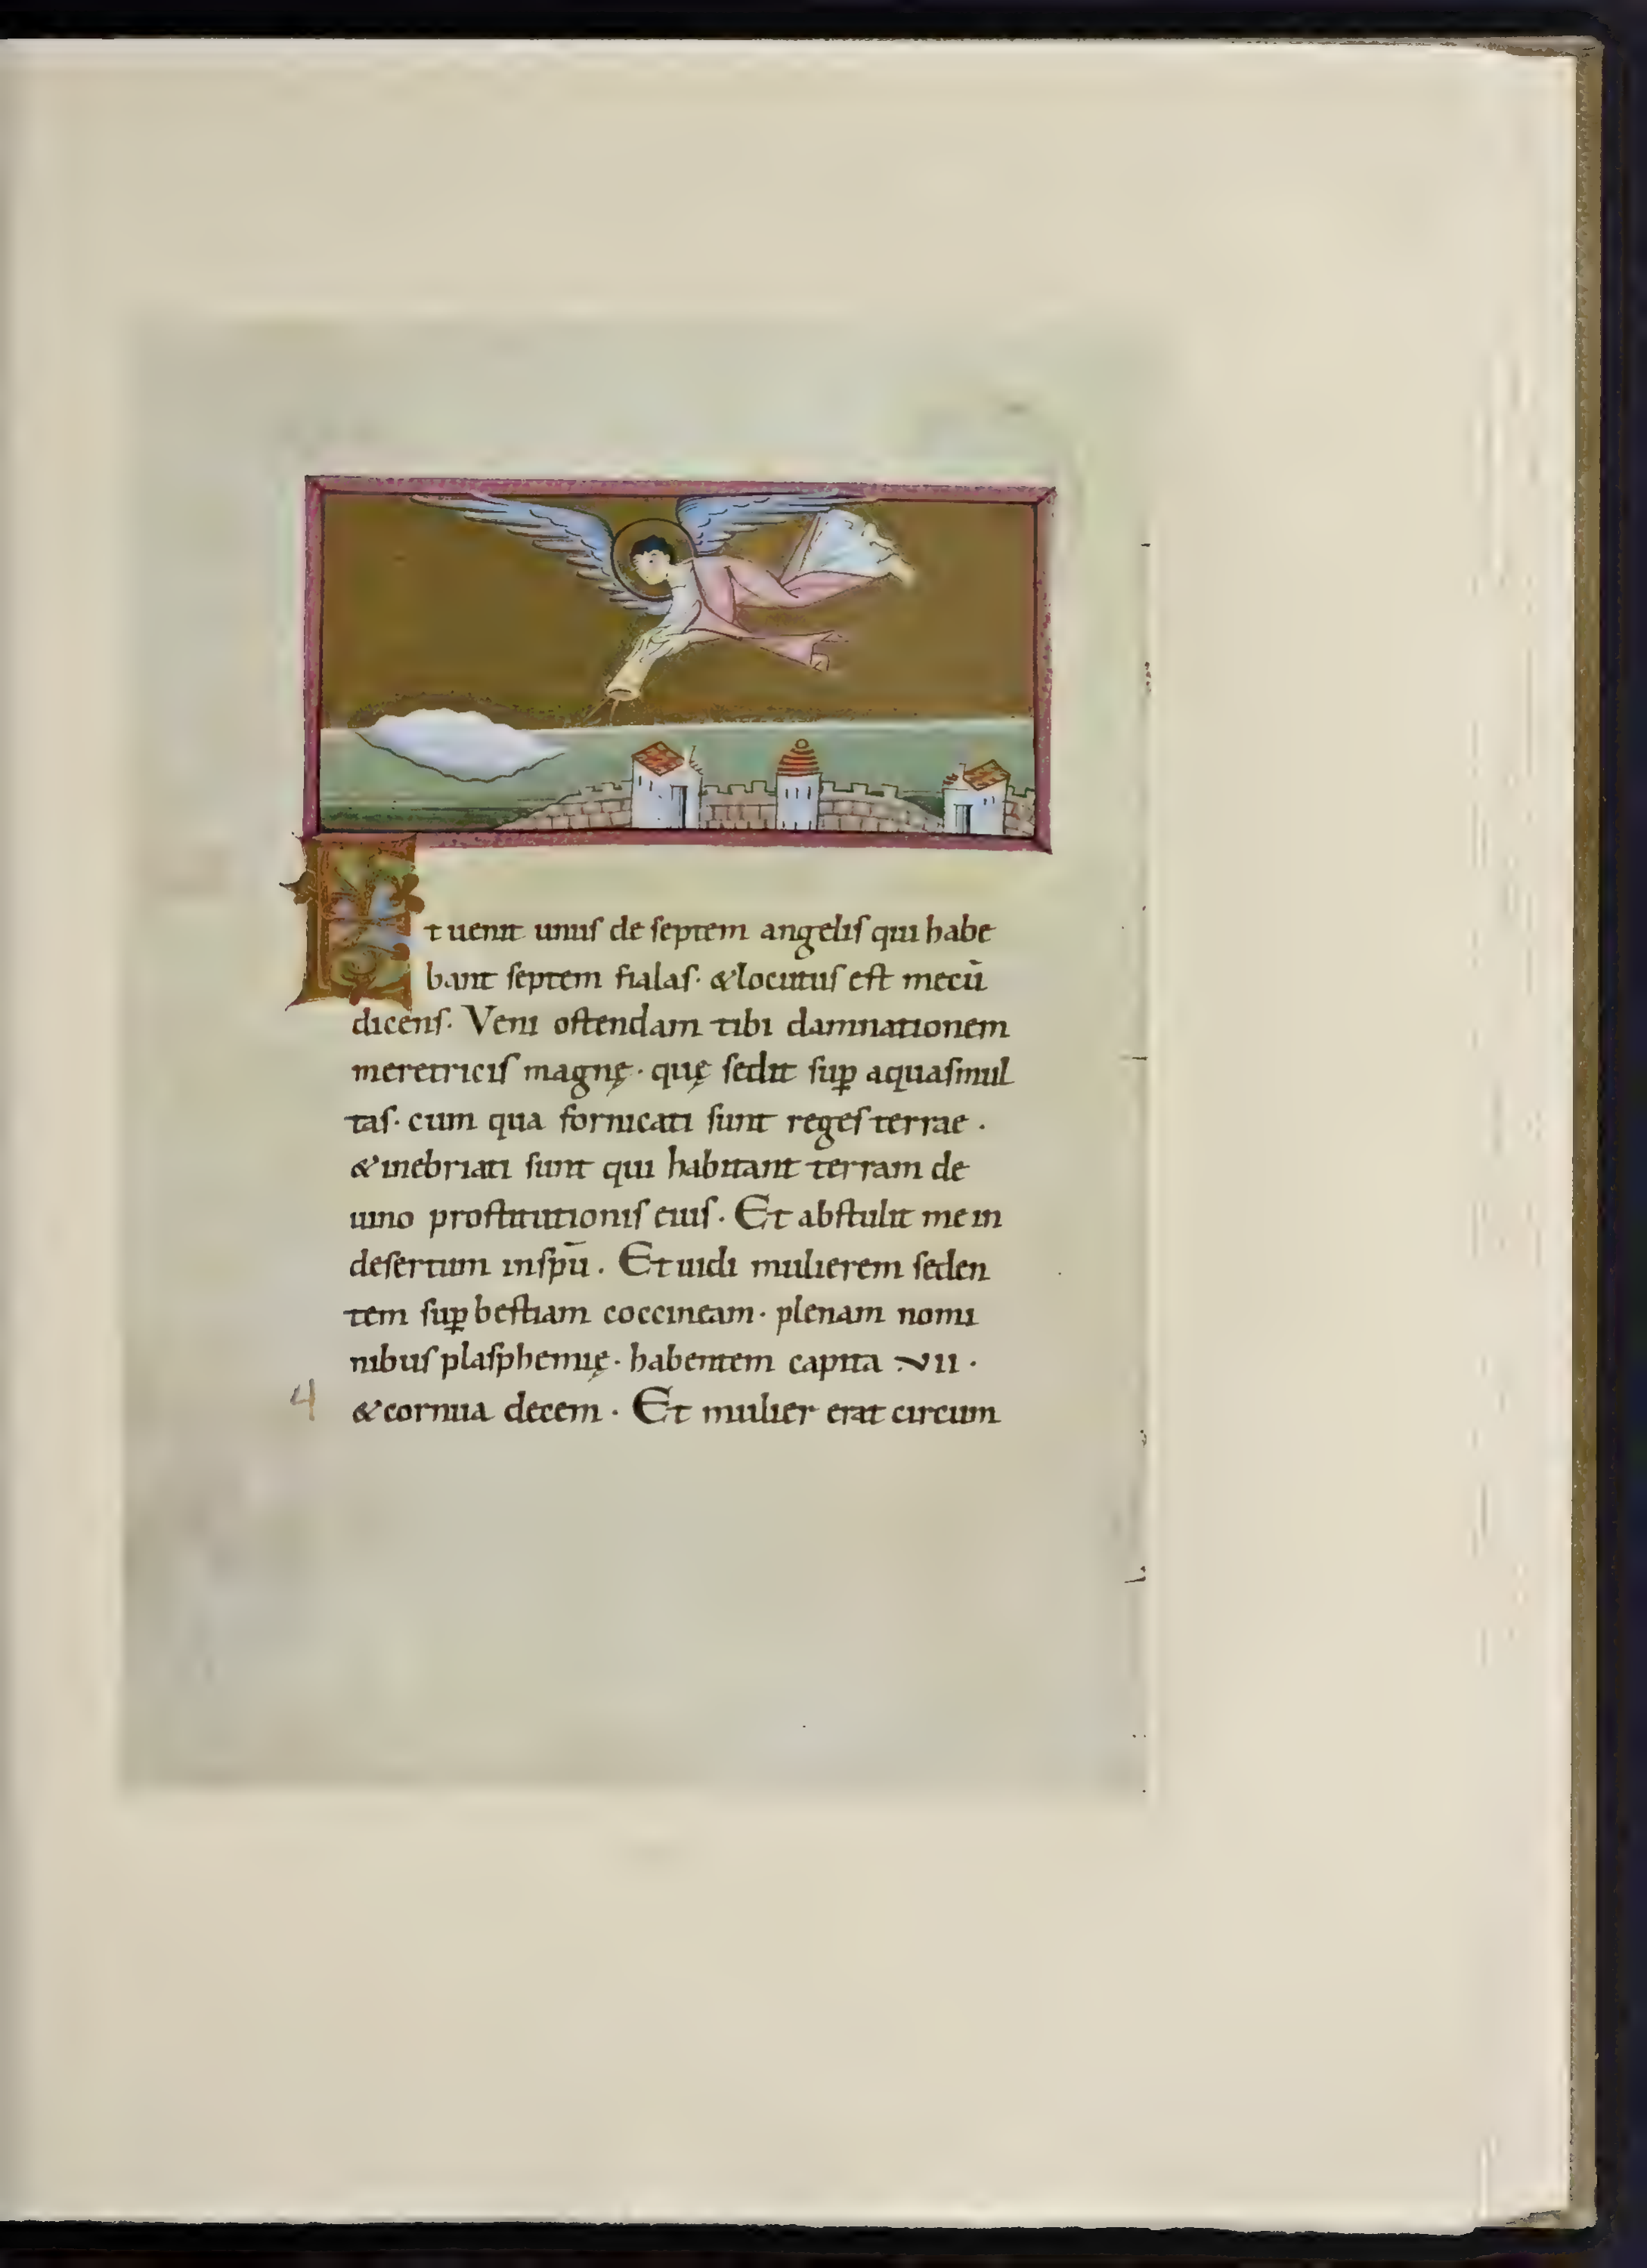 Et uenit unus de septem angelis qui habe
bant septem fialas· &locutus est mecū
dicens· Veni ostendam tibi damnationem
meretricis magnę· quę sedit suꝑ aquasmul
tas· cum qua fornicati sunt reges terrae·
&inebriati sunt qui habitant terram de
uino prostitutionis eius· Et abstulit me in
desertum inspū· Et uidi mulierem seden
tem suꝑ bestiam coccineam· plenam nomi
nibus plasphemię· habentem capita VII·
4 &cornua decem· Et mulier erat circum